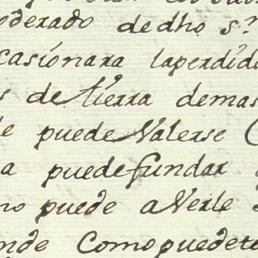 oderado de dho s.r
casionara laperdid
s de tierra demas
e puede Valerse
a puede fundar
no puede averle
nde Como puedete